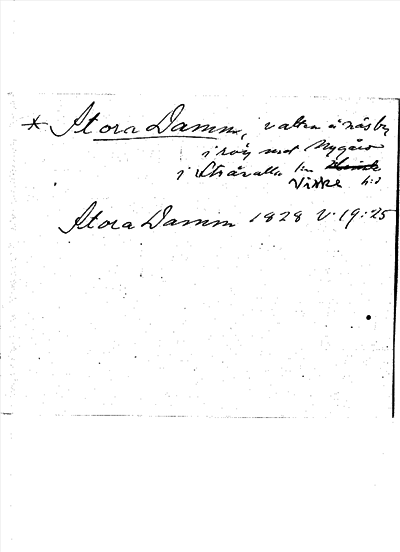 * Stora Damm, vatten å Näsby
i röj med Nygård
i Stråvalla sn
Viske hd
Stora Damm 1828 V. 19:25